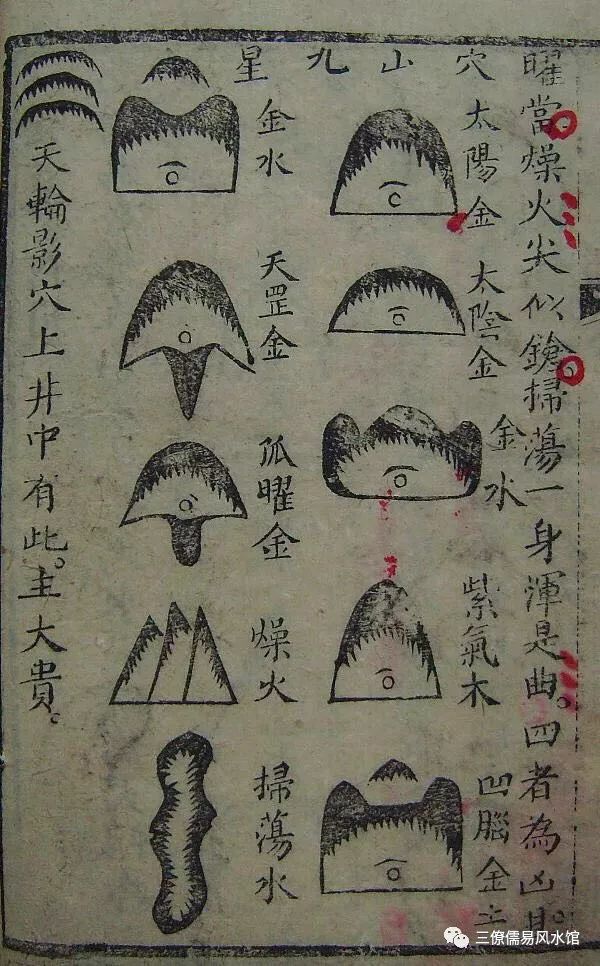 曜當燥火尖似鎗掃蕩一身渾是曲。四者為凶
穴山九星
太陽金
太陰金
金水
紫氣木
凹腦金土
金水
天罡金
孤曜金
燥火
掃蕩水
天輪影穴上井中有此。主大貴。
三僚儒易风水馆